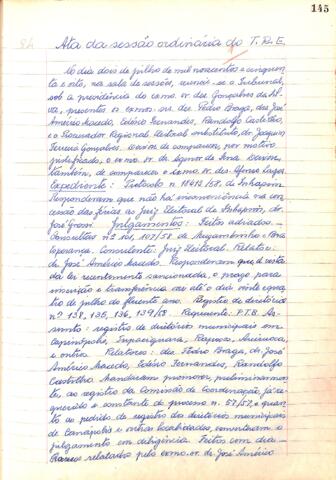 145
Ata da sessão ordinária do T.R.E.
Ao dia dois de julho de mil novecentos e cinquenta
e oito, na sala de sessões, reuniu-se o Tribunal,
sob a presidência do exmo. sr. des. Gonçalves da Sil
va, presentes os exmos. srs. des. Pedro Braga, des. José
Américo Macedo, Edésio Fernandes, Randolfo Castilho,
e o Procurador Regional eleitoral substituto, dr. Joaquim
Ferreira Gonçalves. Deixou de comparecer, por motivo
justificado, o exmo. sr. dr.
também, de comparecer o exmo. sr. des. Afonso Lages.
Expediente: Protocolo n. 1846/58, de Inhapim
Responderam que não há inconveniência na con
cessão das férias ao Juiz Eleitoral de Inhapim, dr.
José Grossi. Julgamentos: Feitos adiados
Consultas nºs 101, 107/58 de Muzambinho e Boa
Esperança. Consulente: Juiz Eleitoral. Relator:
dr. José Américo Macedo. Responderam que, à vista
da lei recentemente sancionada, o prazo para
inscrição e transferência vai até o dia vinte e quatro
de julho do fluente ano. Registro de diretórios
nº 138, 135, 136, 139/58. Requerente: P.T.B. As
sunto: registro de diretórios municipais em
Capinópolis, Tupaciguara, Raposos, Aiuruoca,
e outros. Relatores: des. Pedro Braga, dr. José
Américo Macedo, Edésio Fernandes, Randolfo
Castilho. Mandaram promover, preliminarmen
te, ao registro da Comissão de Coordenação, já re
querido e constante do processo n. 57/57, e quan
to ao pedido de registro dos diretórios municipais
de Canápolis e outras localidades, converteram o
julgamento em diligência. Feitos com dia:
relatados pelo exmo. sr. dr. José Américo